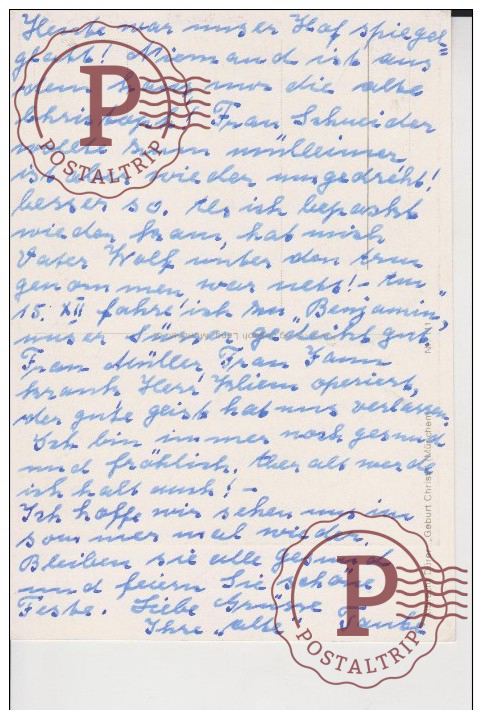 Heute war unser Hof spiegel
glatt! Niemand ist aus
dem Haus nur die alte
Frau Schneider
wollte zum mülleimer
ist wieder umgedreht!
besser so. Als ich bepackt
wieder kam, hat mich
Vater Wolf unter den Arm
genommen war nett! – Am
15. XII fahre ich zu „Benjamin",
unser gedeiht gut
Frau Müller, Frau Hamm
krank Herr Kliem operiert,
der gute geist hat uns verlassen.
Ich bin immer noch gesund
und fröhlich. Aber alt werde
ich halt auch! –
Ich hoffe wir sehen uns im
sommer mal wieder.
Bleiben sie alle gesund
und feiern Sie schöne
Feste. Liebe Grüsse
Ihre „alte" Tante
POSTALTRIP
POSTALTRIP
Geburt Christi München